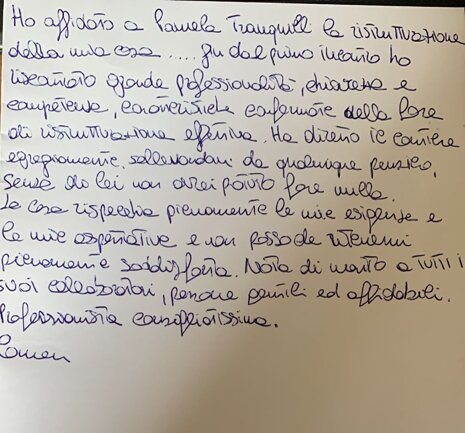 Ho affidato a Pamela Tranquilli la ristrutturazione
della mia casa ..... fin dal primo incontro ho
riscontrato grande professionalità, chiarezza e
competenza, caratteristiche confermate dalla fase
di ristrutturazione effettiva. Ha diretto il cantiere
egregiamente sollevandomi da qualunque pensiero,
senza di lei non avrei potuto fare nulla.
La casa rispecchia pienamente le mie esigenze e
le mie aspettative e non posso che ritenermi
pienamente soddisfatta. Nota di merito a tutti i
suoi collaboratori, persone gentili ed affidabili.
Professionista consigliatissima.